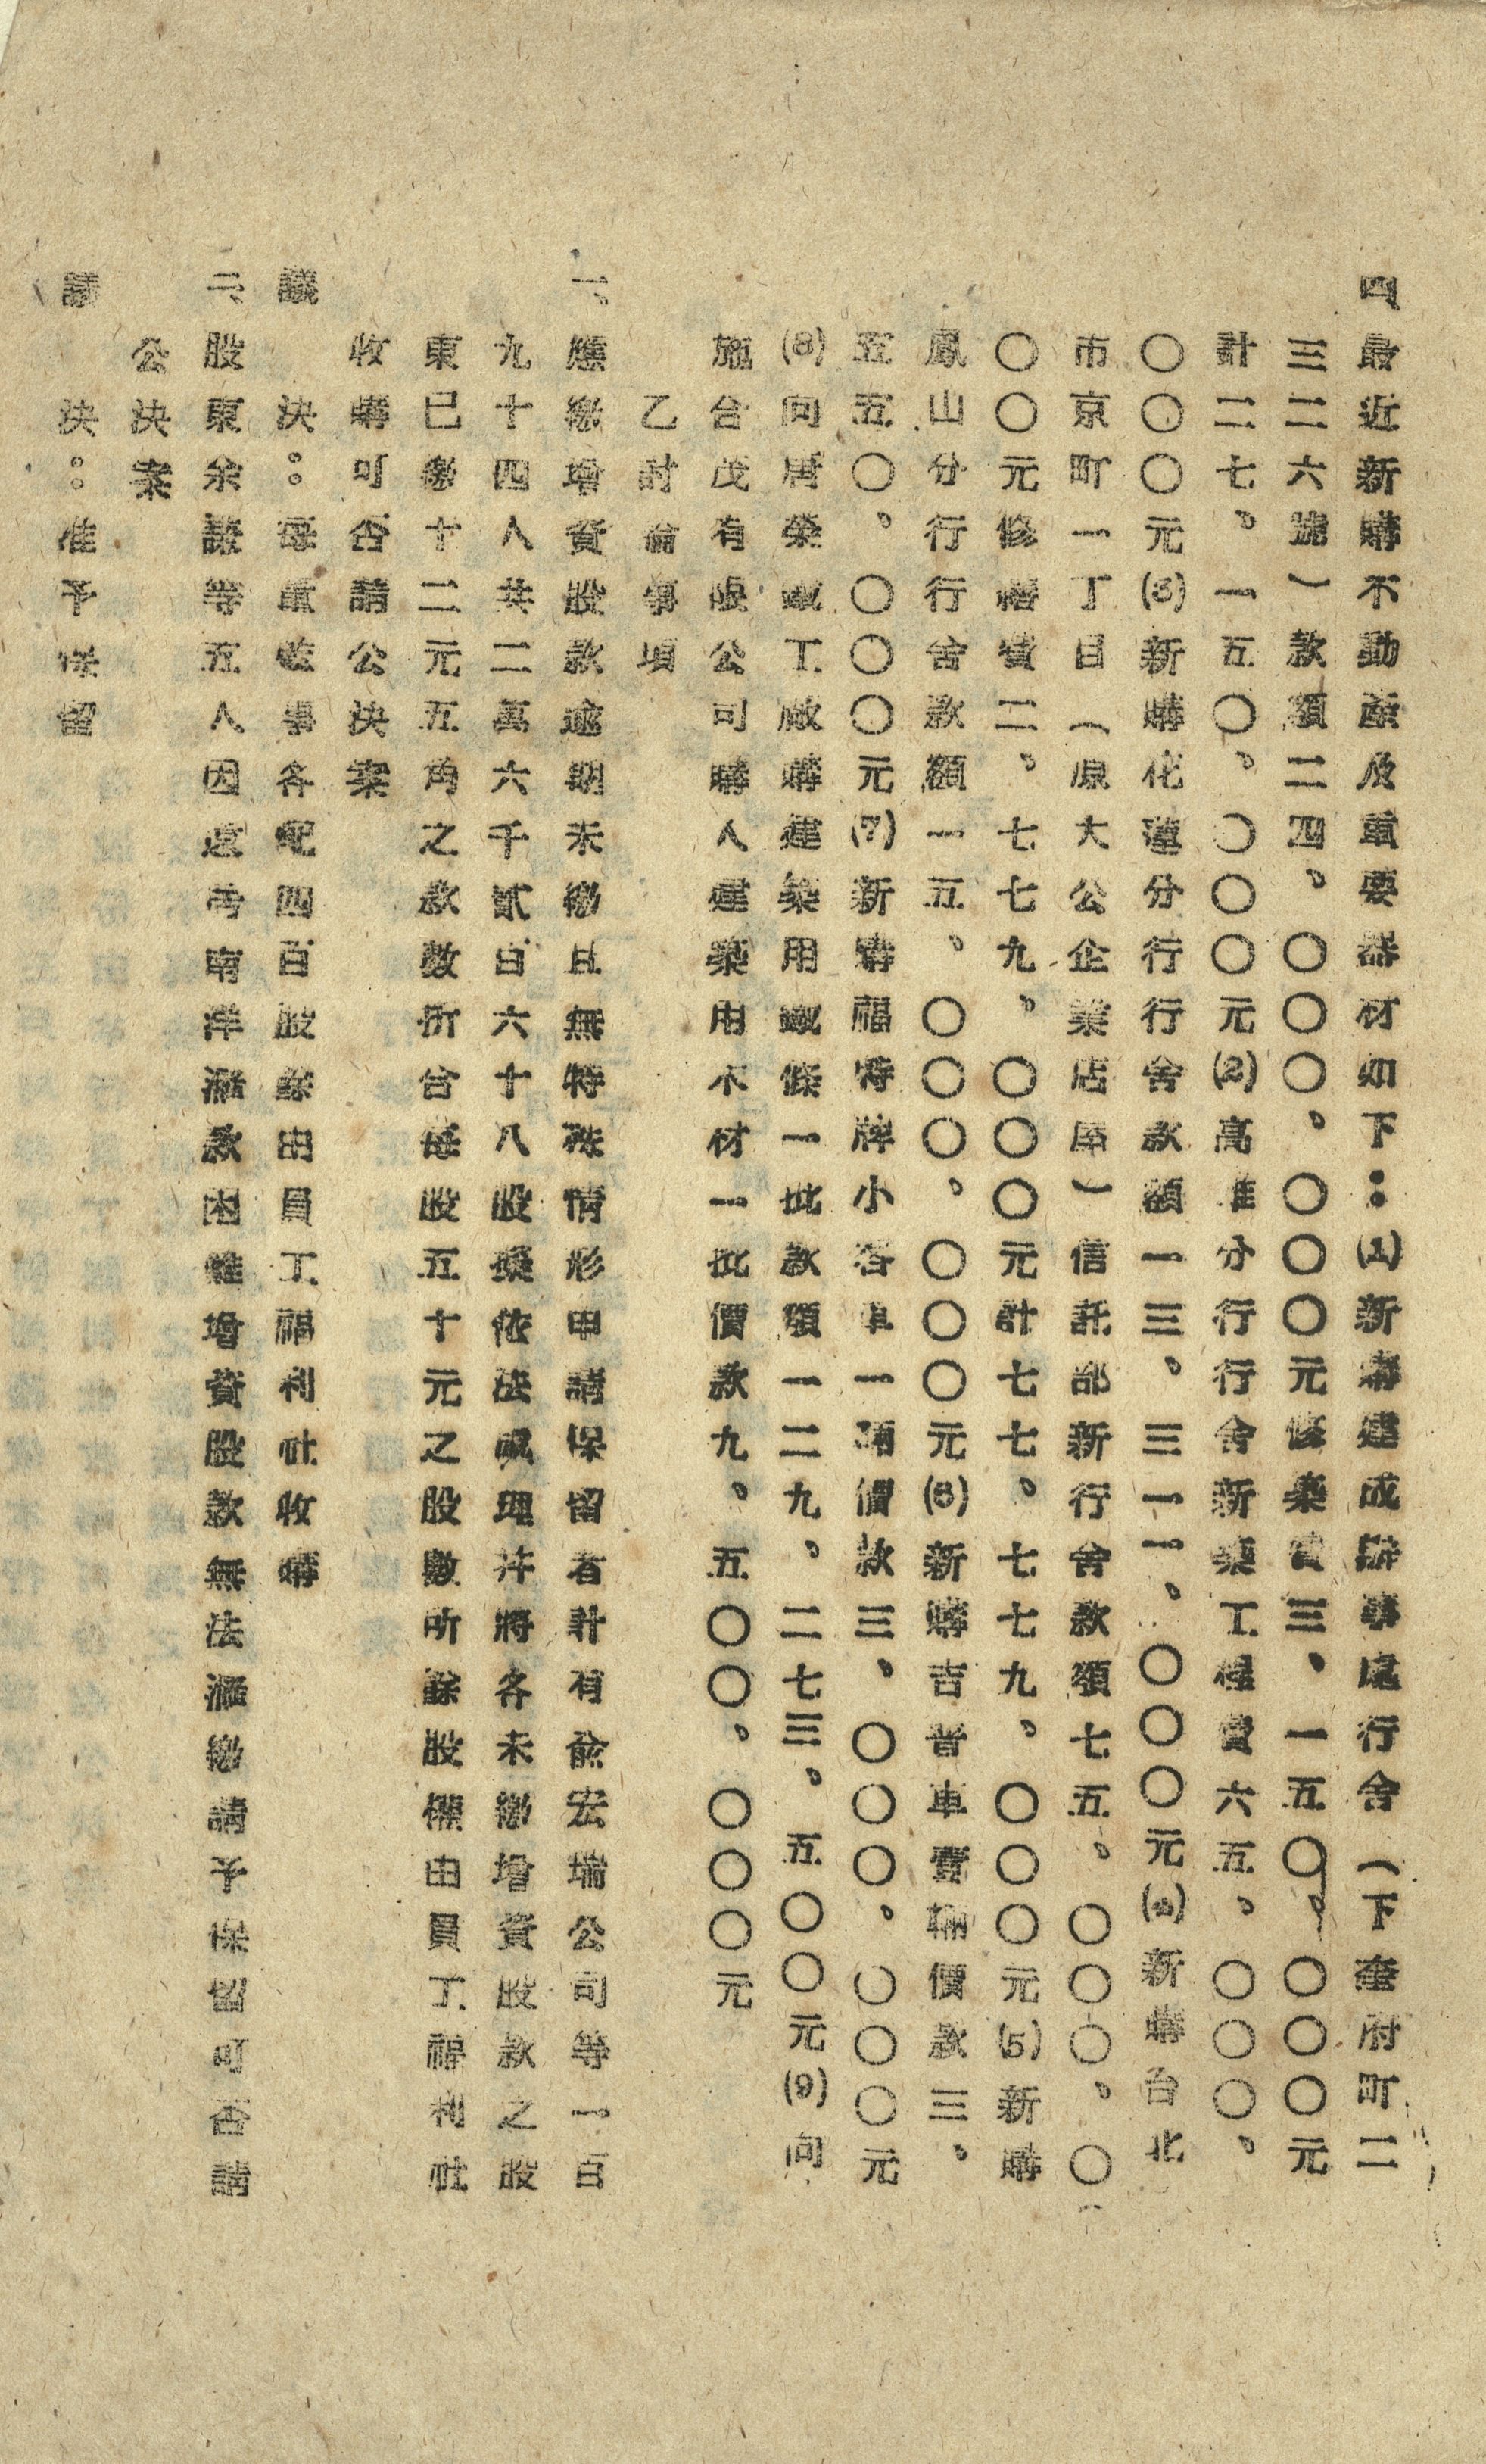 四最近新購不動產及重要器材如下：(1)新購建成辦事處行舍（下奎府町二
三二六號）款額二四、〇〇〇、〇〇〇元修築費三、一五〇、〇〇〇元
計二七、一五〇、〇〇〇元(2)高雄分行行舍新築工程費六五、〇〇〇、
〇〇〇元(3)新購花蓮分行行舍款額一三、三一一、〇〇〇元(4)新購台北
市京町一丁目（原大公企業店屋）信託部新行舍款額七五、〇〇〇、〇
〇〇元修繕費二、七七九、〇〇〇元計七七、七七九、〇〇〇元(5)新購
鳳山分行行舍款額一五、〇〇〇、〇〇〇元(6)新購吉普車壹輛價款三、
五五〇、〇〇〇元(7)新購福特牌小客車一輛價款三、〇〇〇、〇〇〇元
(8)向唐榮鐵工廠購建築用鐵條一批款項一二九、二七三、五〇〇元(9)向
施合茂有限公司購入建築用木材一批價款九、五〇〇、〇〇〇元
乙討論事項
一、應繳增資股款逾期未繳且無特殊情形申請保留者計有俞宏瑞公司等一百
九十四人共二萬六千貳百六十八股擬依法處理并將各未繳增資股款之股
東已繳十二元五角之款數折合每股五十元之股數所餘股權由員工福利社
收購可否請公決案
議決：每畸零各宛四百股餘由員工福利社收購
二、股東余證等五人因遠在南洋滙款困難增資股款無法滙繳請予保留可否請
公決案
議決：准予保留